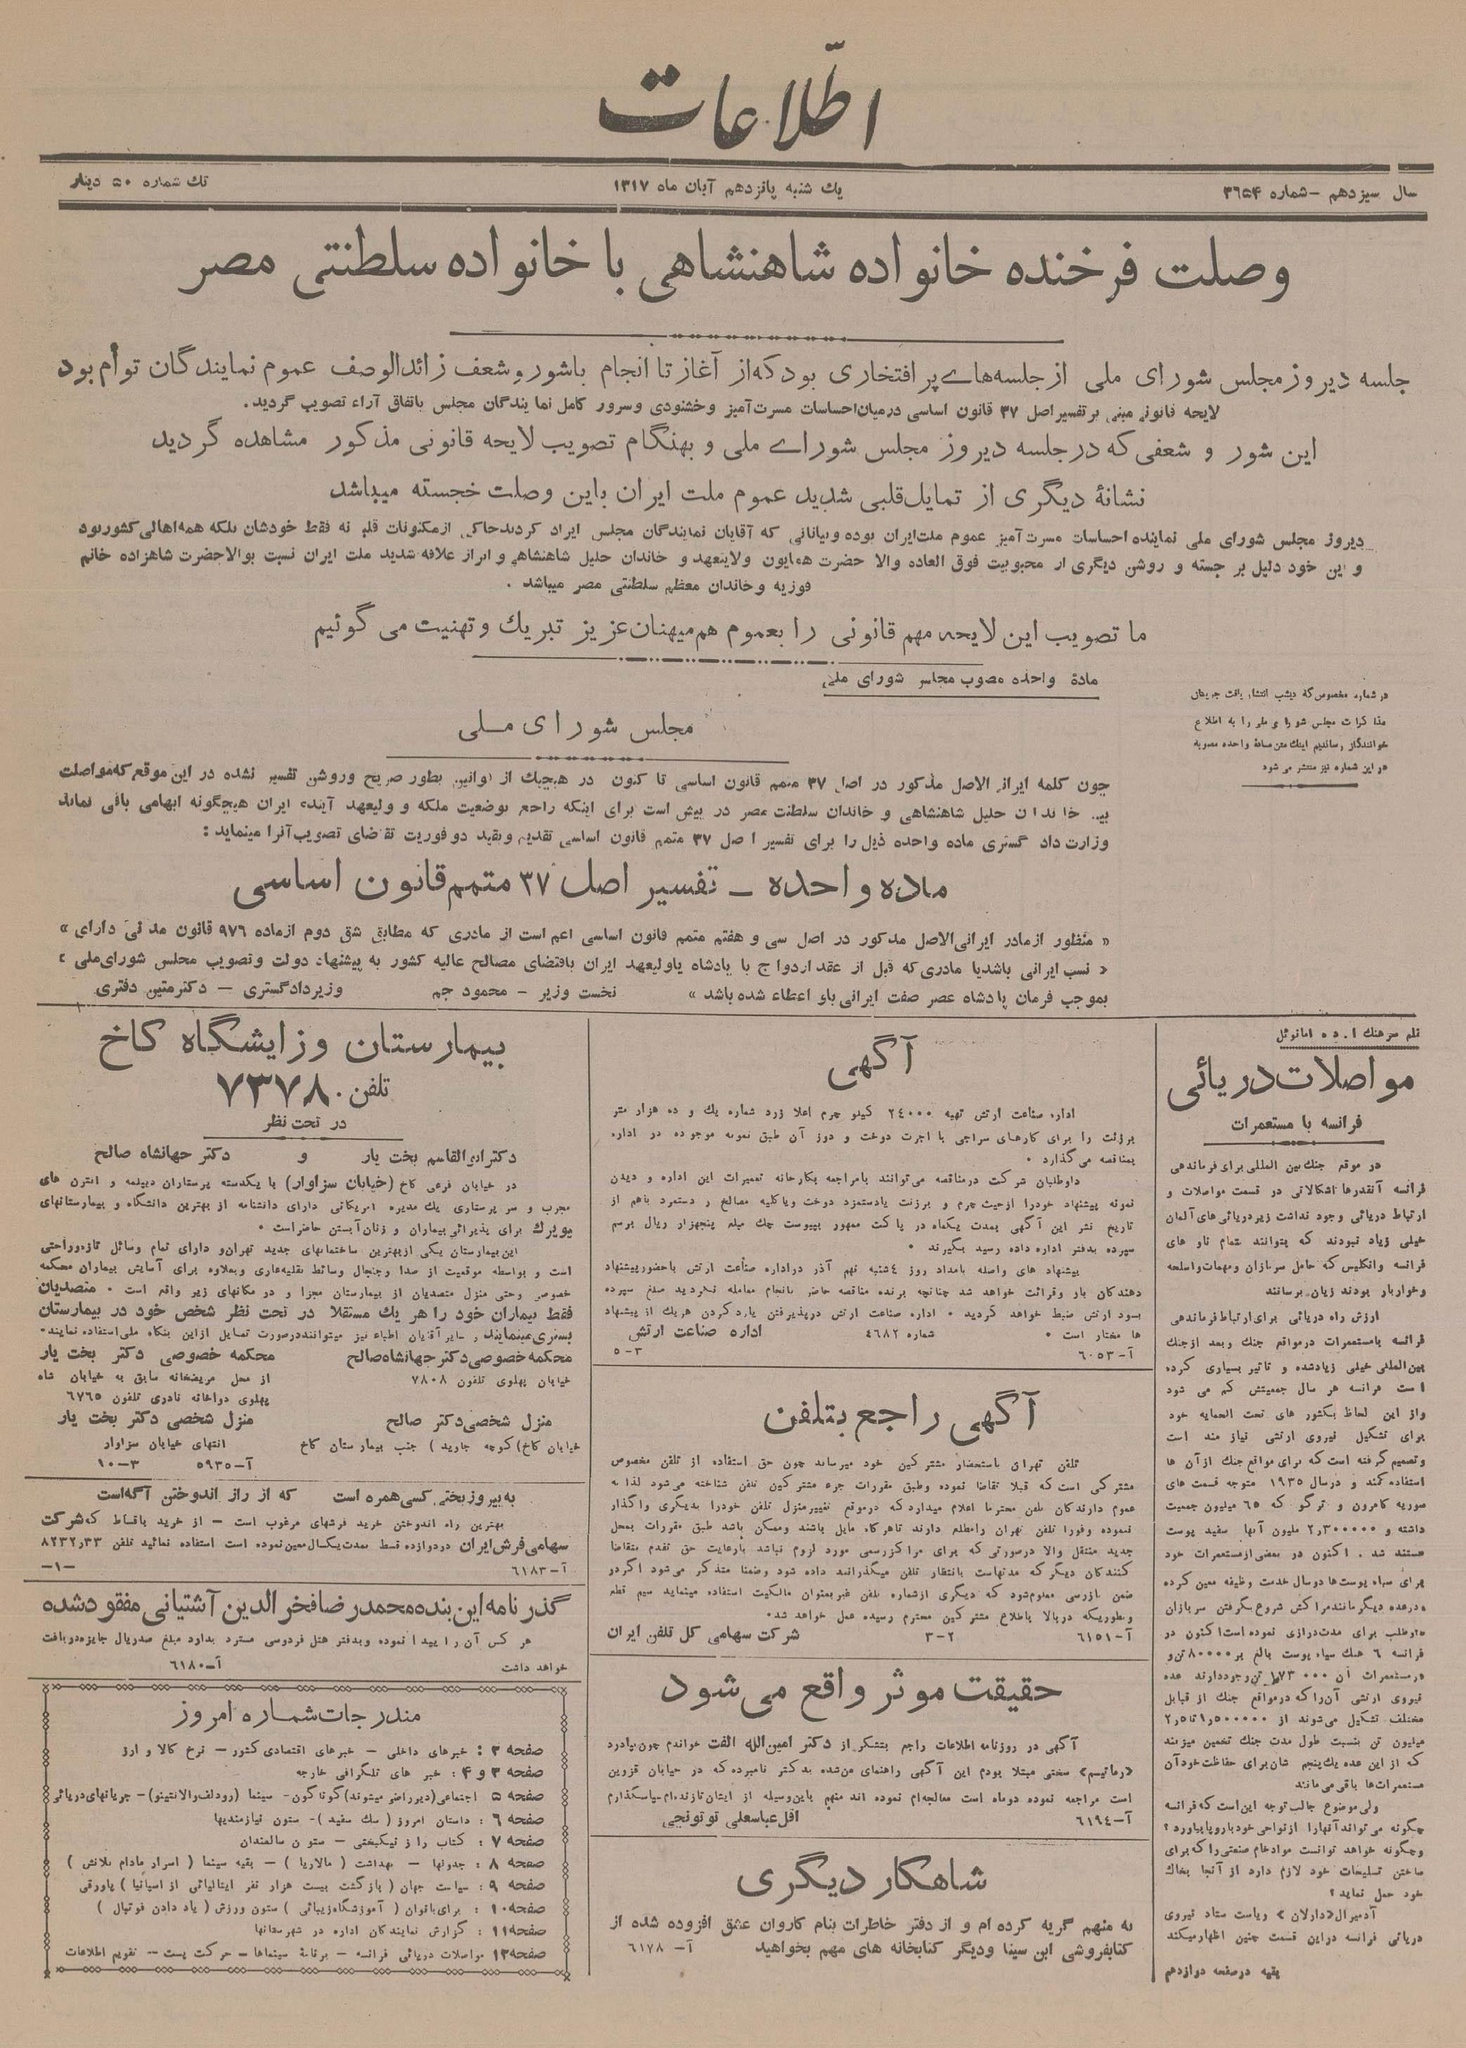 اطلاعات
سال سیزدهم - شماره ۳۶۵۴
یك شنبه پانزدهم آبان ماه ۱۳۱۷
تك شماره ۵۰ دینار
وصلت فرخنده خانواده شاهنشاهی با خانواده سلطنتی مصر
جلسه دیروز مجلس شورای ملی از جلسه‌های پر افتخاری بود که از آغاز تا انجام با شور و شعف زائدالوصف عموم نمایندگان توأم بود
لایحه قانونی مبنی بر تفسیر اصل ۳۷ قانون اساسی در میان احساسات مسرت آمیز و خشنودی و سرور کامل نمایندگان مجلس باتفاق آراء تصویب گردید.
این شور و شعفی که در جلسه دیروز مجلس شورای ملی و بهنگام تصویب لایحه قانونی مذکور مشاهده گردید
نشانهٔ دیگری از تمایل قلبی شدید عموم ملت ایران باین وصلت خجسته میباشد
دیروز مجلس شورای ملی نماینده احساسات مسرت آمیز عموم ملت ایران بوده و بیاناتی که آقایان نمایندگان مجلس ایراد کردند حاکی از مکنونات قلبی نه فقط خودشان بلکه همه اهالی کشور بود
و این خود دلیل بر جسته و روشن دیگری از محبوبیت فوق العاده والا حضرت همایون ولایتعهد و خاندان جلیل شاهنشاهی و ابراز علاقه شدید ملت ایران نسبت بوالاحضرت شاهزاده خانم
فوزیه و خاندان معظم سلطنتی مصر میباشد .
ما تصویب این لایحه مهم قانونی را بعموم هم‌میهنان عزیز تبریك و تهنیت می گوئیم
در شماره مخصوص که دیشب انتشار یافت جریان
مذاکرات مجلس شورای ملی را به اطلاع
خوانندگان رساندیم اینك متن ماده واحده مصوبه
در این شماره نیز منتشر می شود
مادۀ واحده مصوب مجلس شورای ملی
مجلس شورای ملی
چون کلمه ایرانی الاصل مذکور در اصل ۳۷ متمم قانون اساسی تا کنون در هیچیك از قوانین بطور صریح و روشن تفسیر نشده در این موقع که مواصلت
بین خاندان جلیل شاهنشاهی و خاندان سلطنت مصر در پیش است برای اینکه راجع بوضعیت ملکه و ولیعهد آینده ایران هیچگونه ابهامی باقی نماند
وزارت داد گستری ماده واحده ذیل را برای تفسیر اصل ۳۷ متمم قانون اساسی تقدیم و بقید دو فوریت تقاضای تصویب آنرا مینماید :
ماده واحده - تفسیر اصل ۳۷ متمم قانون اساسی
« منظور از مادر ایرانی‌الاصل مذکور در اصل سی و هفتم متمم قانون اساسی اعم است از مادری که مطابق شق دوم از ماده ۹۷۶ قانون مدنی دارای »
« نسب ایرانی باشد یا مادری که قبل از عقد ازدواج با پادشاه یا ولیعهد ایران باقتضای مصالح عالیه کشور به پیشنهاد دولت و تصویب مجلس شورای‌ملی »
بموجب فرمان پادشاه عصر صفت ایرانی باو اعطاء شده باشد »
نخست وزیر - محمود جم
وزیر دادگستری - دکتر متین دفتری
مواصلات دریائی
فرانسه با مستعمرات
در موقع جنك بین المللی برای فرماندهی
فرانسه آنقدرها اشکالاتی در قسمت مواصلات و
ارتباط دریائی وجود نداشت زیردریائی‌های آلمان
خیلی زیاد نبودند که بتوانند تمام ناو های
فرانسه و انگلیس که حامل سربازان و مهمات و اسلحه
و خواربار بودند زیان برسانند
ارزش راه دریائی برای ارتباط فرماندهی
فرانسه با مستعمرات در مواقع جنك و بعد از جنك
بین‌المللی خیلی زیاد شده و تاثیر بسیاری کرده
است فرانسه هر سال جمعیتش کم می شود
و از این لحاظ بکشور های تحت الحمایه خود
برای تشکیل نیروی ارتشی نیاز مند است
و تصمیم گرفته است که برای مواقع جنك از آن ها
استفاده کند و در سال ۱۹۳۵ متوجه قسمت های
سوریه کامرون و توگو که ۶۵ میلیون جمعیت
داشته و ۲٫۳۰۰۰۰۰ ملیون آنها سفید پوست
هستند شد . اکنون در بعضی از مستعمرات خود
برای سیاه پوست‌ها دو سال خدمت وظیفه معین کرده
و در عده دیگر مانند مراکش شروع بگرفتن سربازان
داوطلب برای مدت درازی نموده است اکنون در
نیروی ارتشی آن را که در مواقع جنك از قبایل
میلیون تن بنسبت طول مدت جنك تخمین میزنند
که از این عده یك پنجم شان برای حفاظت خود آن
مستعمرات‌ها باقی می‌مانند
ولی موضوع جالب توجه این است که فرانسه
چگونه می تواند آنها را از نواحی خود باروپا بیاورد ؟
و چگونه خواهد توانست مواد خام صنعتی را که برای
ساختن تسلیحات خود لازم دارد از آنجا بخاك
خود حمل نماید ؟
آدمیرال «دارلان» ریاست ستاد نیروی
دریائی فرانسه در این قسمت چنین اظهار میکند
بقیه در صفحه دوازدهم
آگهی
اداره صناعت ارتش تهیه ۲۴۰۰۰ کیلو چرم اعلا زرد شماره یك و ده هزار متر
برزنت را برای کارهای سراجی با اجرت دوخت و دوز آن طبق نمونه موجوده در اداره
بمناقصه می‌گذارد .
داوطلبان شرکت در مناقصه می‌توانند بامراجعه بکارخانه تعمیرات این اداره و دیدن
نمونه پیشنهاد خود را از حیث چرم و برزنت یا دستمزد دوخت و یا کلیه مصالح و دستمزد باهم از
تاریخ نشر این آگهی بمدت یکماه در پاکت ممهور بپیوست چك مبلغ پنجهزار ریال برسم
سپرده بدفتر اداره داده رسید بگیرند .
پیشنهاد های واصله بامداد روز ۴شنبه نهم آذر در اداره صناعت ارتش باحضور پیشنهاد
دهندگان باز و قرائت خواهد شد چنانچه برنده مناقصه حاضر بانجام معامله نگردید مبلغ سپرده
بسود ارتش ضبط خواهد گردید . اداره صناعت ارتش در پذیرفتن یا رد کردن هر یك از پیشنهاد
ها مختار است . شماره ۴۶۸۲ اداره صناعت ارتش
آ-۶۰۵۳ ۳-۵
آگهی راجع بتلفن
تلفن تهران باستحضار مشترکین خود میرساند چون حق استفاده از تلفن مخصوص
مشترکی است که قبلا تقاضا نموده و طبق مقررات جزء مشترکین تلفن شناخته می‌شود لذا به
عموم دارندگان تلفن محترما اعلام میدارد که در موقع تغییر منزل تلفن خود را بدیگری واگذار
ننموده و فورا تلفن تهران را مطلع دارند تا هرگاه مایل باشند و ممکن باشد طبق مقررات بمحل
جدید منتقل والا در صورتی که برای مرکز رسمی مورد لزوم نباشد بارعایت حق تقدم متقاضا
کنندگان دیگر که مدتهاست بانتظار تلفن میگذرانند داده شود و ضمنا متذکر می شود اگر در
ضمن بازرسی معلوم شود که دیگری از شماره تلفن غیر بعنوان مالکیت استفاده مینماید سیم قطع
و بطوریکه در بالا باطلاع مشترکین محترم رسیده عمل خواهد شد.
آ-۶۱۵۱ ۲-۳ شرکت سهامی کل تلفن ایران
حقیقت موثر واقع می شود
آگهی در روزنامه اطلاعات راجع بتشکر از دکتر امین‌الله الفت خواندم چون بدرد
«رماتیسم» سختی مبتلا بودم این آگهی راهنمای من شده بدکتر نامبرده که در خیابان قزوین
است مراجعه نموده دو ماه است معالجه‌ام نموده اند منهم باین وسیله از ایشان تازنده‌ام سپاسگذارم
آ-۶۱۹۴ اقل عباسعلی توتونچی
شاهکار دیگری
به منهم گریه کرده ام و از دفتر خاطرات بنام کاروان عشق افزوده شده از
کتابفروشی ابن سینا و دیگر کتابخانه های مهم بخواهید آ-۶۱۷۸
بیمارستان و زایشگاه کاخ
تلفن ۷۳۷۸۰
در تحت نظر
دکتر ابوالقاسم بخت یار و دکتر جهانشاه صالح
در خیابان فرعی کاخ (خیابان سزاوار) با یکدسته پرستاران دیپلمه و انترن های
مجرب و سر پرستاری یك مدیره امریکائی دارای دانشنامه از بهترین دانشگاه و بیمارستانهای
نیویرك برای پذیرائی بیماران و زنان آبستن حاضر است .
این بیمارستان یکی از بهترین ساختمانهای جدید تهران و دارای تمام وسائل تازه و راحتی
است و بواسطه موقعیت از صدا و جنجال وسائط نقلیه عاری و بعلاوه برای آسایش بیماران محکمه
خصوصی و حتی منزل متصدیان از بیمارستان مجزا و در مکانهای زیر واقع است . متصدیان
فقط بیماران خود را هر یك مستقلا در تحت نظر شخص خود در بیمارستان
بستری مینمایند و سایر آقایان اطباء نیز میتوانند در صورت تمایل از این بنگاه ملی استفاده نمایند.
محکمه خصوصی دکتر جهانشاه صالح
خیابان پهلوی تلفون ۷۸۰۸
محکمه خصوصی دکتر بخت یار
از محل مریضخانه سابق به خیابان شاه
پهلوی دواخانه نادری تلفون ۶۷۶۵
منزل شخصی دکتر صالح
خیابان کاخ (کوچه جاوید) جنب بیمارستان کاخ
منزل شخصی دکتر بخت یار
انتهای خیابان سزاوار
آ-۵۹۳۵ ۳-۱۰
به بیروز بختی کسی همره است که از راز اندوختن آگه است
بهترین راه اندوختن خرید فرشهای مرغوب است - از خرید باقساط که شرکت
سهامی فرش ایران در دوازده قسط بمدت یکسال معین نموده است استفاده نمائید تلفن ۸۲۳۲٫۳۳
آ-۶۱۸۳ -۱-
گذرنامه این بنده محمدرضا فخرالدین آشتیانی مفقود شده
هر کس آن را پیدا نموده و بدفتر هتل فردوسی مسترد بدارد مبلغ صد ریال جایزه دریافت
خواهد داشت آ-۶۱۸۰
مندرجات شماره امروز
صفحه ۲ : خبرهای داخلی - خبرهای اقتصادی کشور - نرخ کالا و ارز
صفحه ۳ و ۴ : خبر های تلگرافی خارجه
صفحه ۵ اجتماعی (دیر راضر میشوند) گوناگون - سینما (رودلف والانتینو) - جریانهای دریائی
صفحه ۶ : داستان امروز ( سك سفید ) - ستون نیازمندیها
صفحه ۷ : کتاب راز نیکبختی - ستون سالمندان
صفحه ۸ : جدولها - بهداشت ( مالاریا ) - بقیه سینما ( اسرار مادام بلانش )
صفحه ۹ : سیاست جهان ( بازگشت بیست هزار نفر ایتالیائی از اسپانیا ) پاورقی
صفحه ۱۰ : برای بانوان ( آموزشگاه زیبائی ) ستون ورزش ( یاد دادن فوتبال )
صفحه ۱۱ : گزارش نمایندگان اداره در شهرستانها
صفحه ۱۲ مواصلات دریائی فرانسه - برنامهٔ سینماها - حرکت پست - تقویم اطلاعات